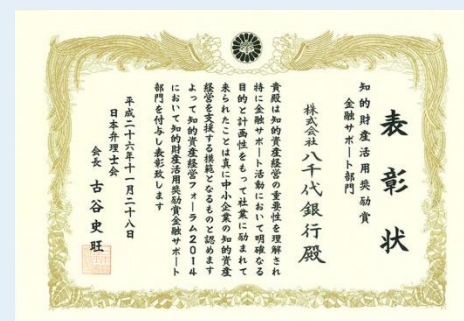 表彰状
知的財産活用奨励賞
金融サポート部門
株式会社八千代銀行殿
貴殿は知的資産経営の重要性を理解され
特に金融サポート活動において明確なる
目的と計画性をもって社業に励まれて
来られたことは真に中小企業の知的資産
経営を支援する模範となるものと認めます
よって知的資産経営フォーラム2014
において知的財産活用奨励賞金融サポート
部門を付与し表彰致します
平成二十六年十一月二十八日
日本弁理士会
会長 古谷史旺